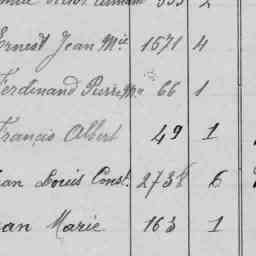 Ernest Jean Mie 1571 4
Ferdinand Pierre Me 66 1
Francis Albert 49 1
Jean Louis Const. 273 6
Jean Marie 163 1